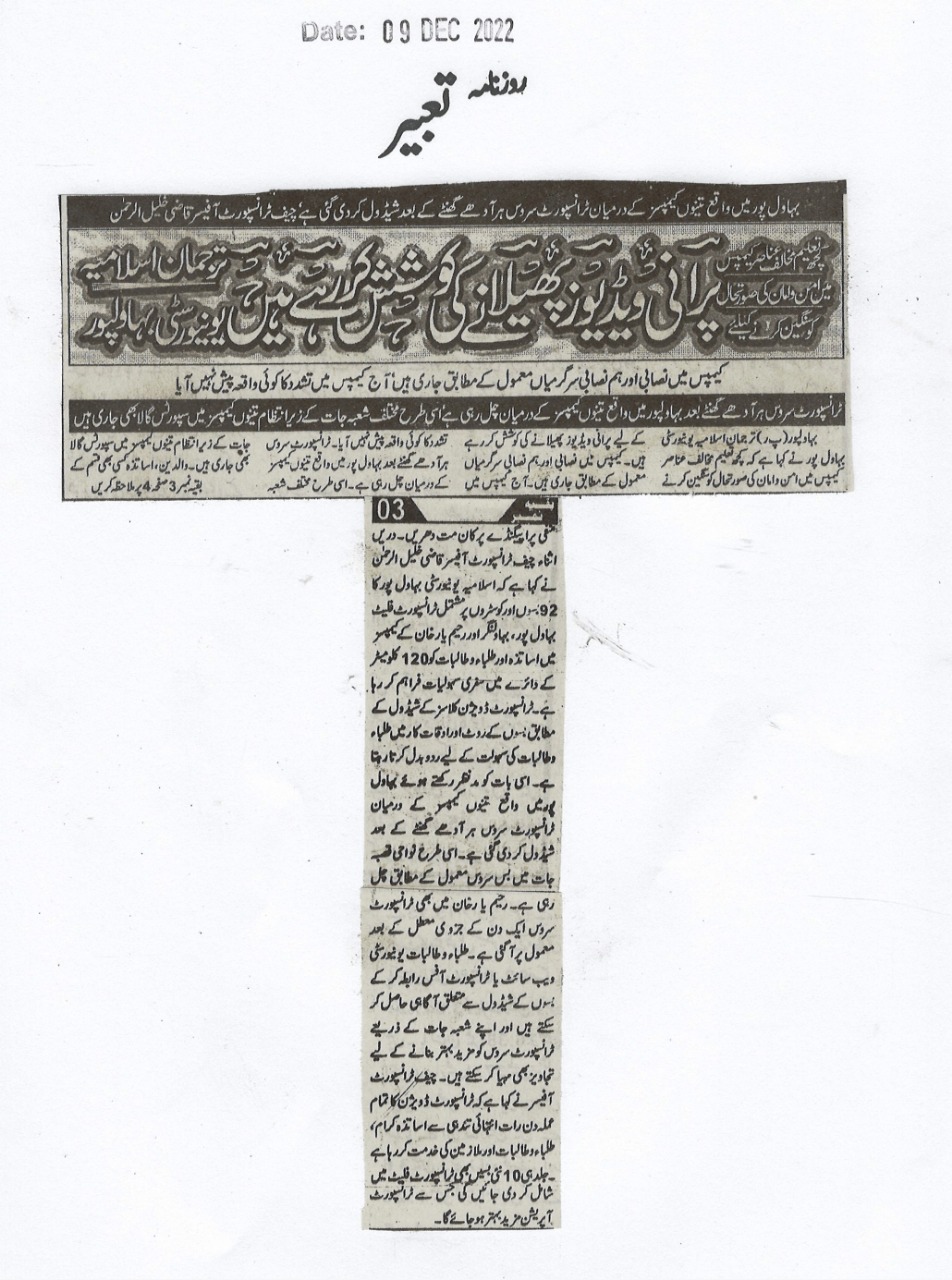 Date: 09 DEC 2022
روزنامہ تعبیر
بہاول پور میں واقع تینوں کیمپسز کے درمیان ٹرانسپورٹ سروس ہر آدھے گھنٹے کے بعد شیڈول کر دی گئی ہے، چیف ٹرانسپورٹ آفیسر قاضی خلیل الرحمٰن
کچھ تعلیم مخالف عناصر کیمپس
میں امن و امان کی صورتحال
کو سنگین کرنے کیلئے
پرانی ویڈیوز پھیلانے کی کوشش کر رہے ہیں
ترجمان اسلامیہ
یونیورسٹی بہاولپور
کیمپس میں نصابی اور ہم نصابی سرگرمیاں معمول کے مطابق جاری ہیں، آج کیمپس میں تشدد کا کوئی واقعہ پیش نہیں آیا
ٹرانسپورٹ سروس ہر آدھے گھنٹے بعد بہاولپور میں واقع تینوں کیمپسز کے درمیان چل رہی ہے، اسی طرح مختلف شعبہ جات کے زیر انتظام تینوں کیمپسز میں سپورٹس گالا بھی جاری ہیں
بہاولپور (پ ر) ترجمان اسلامیہ یونیورسٹی
بہاول پور نے کہا ہے کہ کچھ تعلیم مخالف عناصر
کیمپس میں امن و امان کی صورتحال کو سنگین کرنے
کے لیے پرانی ویڈیوز پھیلانے کی کوشش کر رہے
ہیں۔ کیمپس میں نصابی اور ہم نصابی سرگرمیاں
معمول کے مطابق جاری ہیں۔ آج کیمپس میں
تشدد کا کوئی واقعہ پیش نہیں آیا۔ ٹرانسپورٹ سروس
ہر آدھے گھنٹے بعد بہاول پور میں واقع تینوں کیمپسز
کے درمیان چل رہی ہے۔ اسی طرح مختلف شعبہ
جات کے زیر انتظام تینوں کیمپسز میں سپورٹس گالا
بھی جاری ہیں۔ والدین، اساتذہ کسی بھی قسم کے
بقیہ نمبر 3 صفحہ 4 پر ملاحظہ کریں
بقیہ نمبر 03
منفی پراپیگنڈے پر کان مت دھریں۔ دریں
اثناء چیف ٹرانسپورٹ آفیسر قاضی خلیل الرحمٰن
نے کہا ہے کہ اسلامیہ یونیورسٹی بہاول پور کا
92 بسوں اور کوسٹروں پر مشتمل ٹرانسپورٹ فلیٹ
بہاول پور، بہاولنگر اور رحیم یار خان کے کیمپسز
میں اساتذہ اور طلباء و طالبات کو 120 کلومیٹر
کے دائرے میں سفری سہولیات فراہم کر رہا
ہے۔ ٹرانسپورٹ ڈویژن کلاسز کے شیڈول کے
مطابق بسوں کے روٹ اور اوقات کار میں طلباء
و طالبات کی سہولت کے لیے ردوبدل کرتا رہتا
ہے۔ اسی بات کو مدنظر رکھتے ہوئے بہاول
پور میں واقع تینوں کیمپسز کے درمیان
ٹرانسپورٹ سروس ہر آدھے گھنٹے کے بعد
شیڈول کر دی گئی ہے۔ اسی طرح نواحی قصبہ
جات میں بس سروس معمول کے مطابق چل
رہی ہے۔ رحیم یار خان میں بھی ٹرانسپورٹ
سروس ایک دن کے جزوی معطل کے بعد
معمول پر آ گئی ہے۔ طلباء و طالبات یونیورسٹی
ویب سائٹ یا ٹرانسپورٹ آفس رابطہ کر کے
بسوں کے شیڈول سے متعلق آگاہی حاصل کر
سکتے ہیں اور اپنے شعبہ جات کے ذریعے
ٹرانسپورٹ سروس کو مزید بہتر بنانے کے لیے
تجاویز بھی مہیا کر سکتے ہیں۔ چیف ٹرانسپورٹ
آفیسر نے کہا ہے کہ ٹرانسپورٹ ڈویژن کا تمام
عملہ دن رات انتہائی تندہی سے اساتذہ کرام،
طلباء و طالبات اور ملازمین کی خدمت کر رہا ہے
۔ جلد ہی 10 نئی بسیں بھی ٹرانسپورٹ فلیٹ میں
شامل کر دی جائیں گی جس سے ٹرانسپورٹ
آپریشن مزید بہتر ہو جائے گا۔